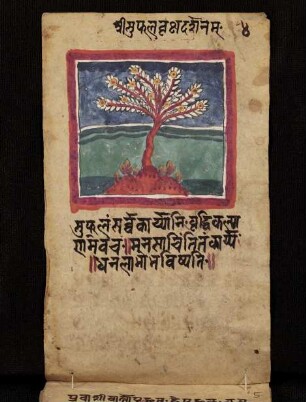 श्रीसुफलवृक्षदर्शनमः ४
सुफलं सर्व्वकार्य्याणि वृद्धिकल्या
णमेवच॥मनसाचिंतितंकार्य्यं
॥धनलाभोभविष्यति॥